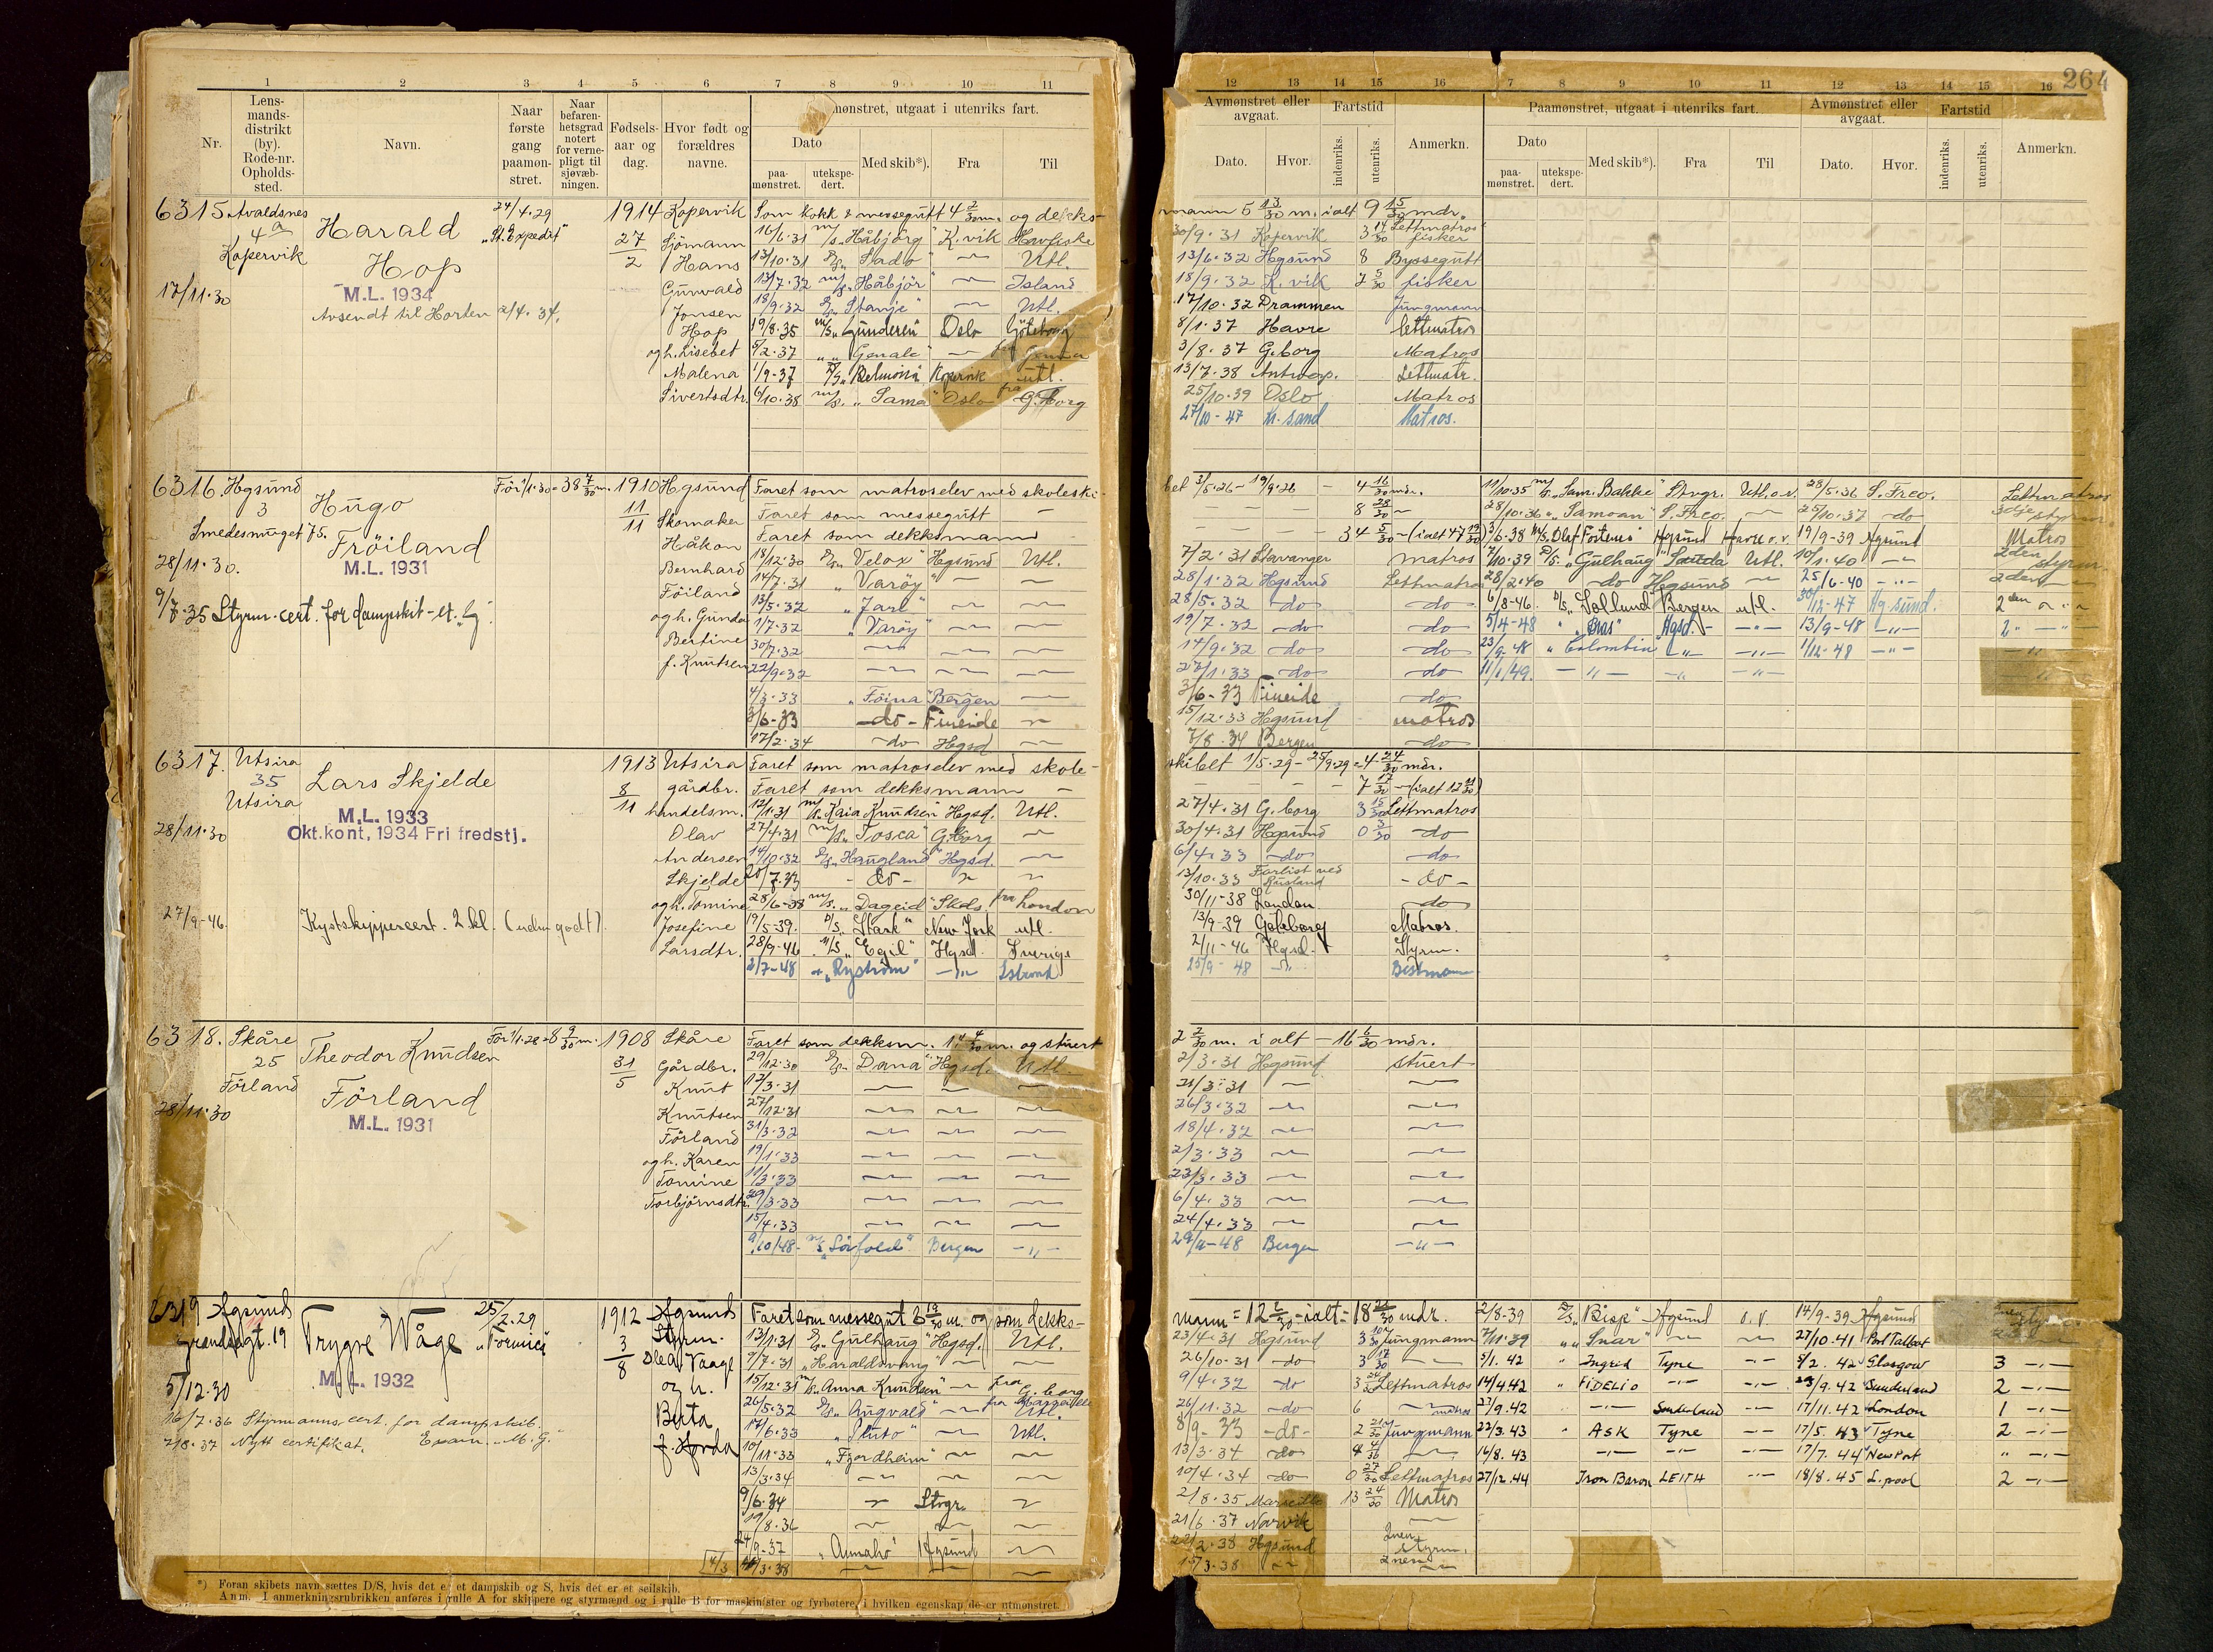 264
1 2 3 4 5 6 7 8 9 10 11
Nr.
Lensmandsdistrikt (by). Rode-nr. Opholdssted.
Navn.
Naar første gang paamønstret.
Naar befarenhetsgrad notert for vernepligt til sjøvæbningen.
Fødselsaar og dag.
Hvor født og forældres navne.
mønstret, utgaat i utenriks fart.
Dato
paamønstret.
utekspedert.
Med skib*).
Fra
Til
12 13 14 15 16 7 8 9 10 11 12 13 14 15 16
Avmønstret eller avgaat.
Fartstid
Dato.
Hvor.
indenriks.
utenriks.
Anmerkn.
Paamønstret, utgaat i utenriks fart.
Dato
paamønstret.
utekspedert.
Med skib*).
Fra
Til
Avmønstret eller avgaat.
Fartstid
Dato.
Hvor.
indenriks.
utenriks.
Anmerkn.
6315 Avaldsnes 4a Kopervik
17/11.30
Harald Hop
M.L. 1934
Avsendt til Horten 2/4. 34.
24/4.29
1914 27/2
Kopervik
Sjömann
Hans
Gunvald
Jonsen
Hop
og h. Lisebet
Malena
Sivertsdtr.
Som kokk & messegutt 4 2/30 m. og dekks-
16/6.31 M/S „Håbjörg" K.vik Havfiske
13/10.31 „Lado" Utl.
13/7.32 „Håbjör" Island
18/9.32 „Stanja" Utl.
19/8.35 M/S „Gunderen" Oslo Göteborg
5/2.37
1/9-37 Kopervik utl.
6/10.38 „Tama" Oslo fra G.borg
mann 5 13/30 m. ialt 9 15/30 mdr.
30/9.31 Kopervik 3 14/30 Lettmatros fisker
13/6.32 Hgsund 8 Byssegutt
18/9.32 K.vik 2 5/30 fisker
17/10.32 Drammen Jungmann
8/1.37 Havre lettmatros
3/8.37 G.borg Matros
13/7.38 Antwerp. Lettmatr.
25/10.39 Oslo Matros
27/10-47 Kr.sand Matros.
6316. Hgsund 3 Smedesmuget 75.
28/11.30.
Hugo Fröiland
M.L. 1931
9/7.35 Styrm.cert. for dampskib
För 1/1.30 = 38 7/30 m.
1910 11/11
Hgsund
Skomaker
Håkon
Bernhard
Föiland
og h. Gunda
Bertine
f. Knutsen
Faret som matroselev med skoleski-
Faret som messegutt
Faret som dekksmann
18/12.30 „Velox" Hgsund Utl.
14/7.31 „Varöy"
13/5.32 „Jarl"
1/7.32 „Varöy"
30/7.32
22/9.32
4/3.33 „Föina" Bergen
3/6-33 -do- Fineide
17/2.34 do Hgsd
bet 3/5.26-19/9.26 - 4 16/30 mdr.
8 28/30
34 5/30 (ialt 47 19/30)
7/2.31 Stavanger matros
28/1.32 Hgsund Lettmatros
28/5.32 -do- -do-
19/7.32 -do- -do-
14/9.32 -do- -do-
27/1.33 -do- -do-
3/6-33 Fineide do
15/12.33 Hgsund matros
7/8.34 Bergen do
11/10.35 M/S „Sam. Bakke" Stvgr. Utl. o.v. 28/5.36 S. Frco. Lettmatros
28/10.36 „Samoan" S. Frco. 25/10.37 do 3dje styrm.
3/6.38 M/S „Olaf Fostenes" Hgsund Havre o.v. 19/9-39 Hgsund Matros
7/10.39 „Gulhaug" Sauda Utl. 10/1.40 2den styrm.
28/2.40 do Hgsund 25/6-40 2den
6/8-46. D/S „Sollund" Bergen utl. 30/12-47 Hgsund. 2den
5/4-48 „Bras" Hgsd. 13/9-48 2
23/9.48 „Colombia" 1/12-48
11/1/49.
6317. Utsira 35 Utsira
28/11.30
Lars Skjelde
M.L. 1933
Okt.kont. 1934 Fri fredstj.
27/9-46. Kystskippercert. 2 kl.
1913 8/11
Utsira
gårdbr.
handelsm.
Olav
Andersen
Skjelde
og h. Tomine
Josefine
Larsdtr.
Faret som matroselev med skole-
Faret som dekksmann
12/1.31 „Kaia Knudsen" Hgsd. Utl.
27/4.31 „Tosca" G.borg
14/10.32 „Haugland" Hgsd.
20/7.33 - do -
28/6-38 M/S „Dageid" fra London
19/5-39. D/S „Stark" New York utl.
28/9-46 M/S „Egil" Hgsd. Sverige
2/7-48 „Ryström"
skibet 1/5.29 - 25/9.29 = 4 24/30 mdr.
7 17/30 (ialt 12 11/30)
27/4.31 G.borg 3 15/30 Lettmatros
30/4.31 Hgsund 0 3/30 do
6/4.33 do do
13/10.33 Forlist ved Rusland - do -
30/11-38 London do
13/9-39 Göteborg Matros.
2/11-46 Hgsd. Styrm.
25/9-48 Bestmann
6318. Skåre 25 Förland
28/11.30
Theodor Knudsen Förland
M.L. 1931
För 1/1.28 = 8 9/30 m.
1908 31/5
Skåre
Gårdbr.
Knut
Knutsen
Förland
og h. Karen
Tomine
Torbjörnsdtr.
Faret som dekksm. 14 4/30 m. og stuert
29/12.30 „Dana" Hgsd. Utl.
12/3.31
27/12.31
31/3.32
19/1.33
10/3.33
29/3.33
15/4.33
9/10/48 „Sörfold" Bergen
2 2/30 m. i alt - 16 6/30 mdr.
2/3.31 Hgsund stuert
21/3.31
26/3.32
18/4.32
2/3.33
23/3.33
6/4.33
24/4.33
Bergen
6319 Hgsund Strandagt. 19
5/12.30
Trygve Våge
M.L. 1932
16/7.36 Styrmannscert. for dampskib.
7/8.37 Nytt certifikat. Exam. „M.G."
25/2.29
1912 3/8
Hgsund
Styrm.
Olea Vaage
og h.
Berta
f. Horda
Faret som messegut 6 19/30 m. og som dekks-
13/1.31 „Gulhaug" Hgsd. Utl.
9/7.31 „Haraldsvang"
15/12.31 „Anna Knudsen" fra G.borg
26/5.32 „Augvald" fra Marseille Utl.
14/6.33 „Pluto" Utl.
10/11.33 „Fjordheim"
13/3.34
9/6.34 Stvgr.
19/8.36
24/9-37 „Annaho" Hgsund
mann = 12 2/30 - ialt - 18 21/30 mdr.
23/4.31 Hgsund 3 Jungmann
26/10.31 do 3 17/30
9/4.32 do 3 Lettmatros
26/11.32 do 6 matros
8/9-33 -do- 2 Jungmann
13/3.34 do 4
10/4.34 do 0 27/30 Lettmatros
2/8.35 Marseille 13 24/30 Matros
21/6.37 Narvik
2.38 Hgsund 2nen styrm.
15/3.38 2nen
2/8-39 „Bisp" Hgsund o.v. 14/9-39 Hgsund
7/11.39 „Snar" 27/10-41 Port Talbot
5/1.42 Ingrid Tyne 9/2.42 Glasgow 3
14/4.42 Fidelio 23/9.42 Sunderland 2
27/9.42 Sunderland 17/11.42 London 1
22/3.43 Ask Tyne 17/5.43 Tyne 2
16/8.43 17/7.44 Newport
27/12.44 Iron Baron Leith 18/8.45 L.pool 2
*) Foran skibets navn sættes D/S, hvis det er et dampskib og S, hvis det er et seilskib.
Anm. I anmerkningsrubrikken anføres i rulle A for skippere og styrmænd og i rulle B for maskinister og fyrbøtere, i hvilken egenskap de er utmønstret.